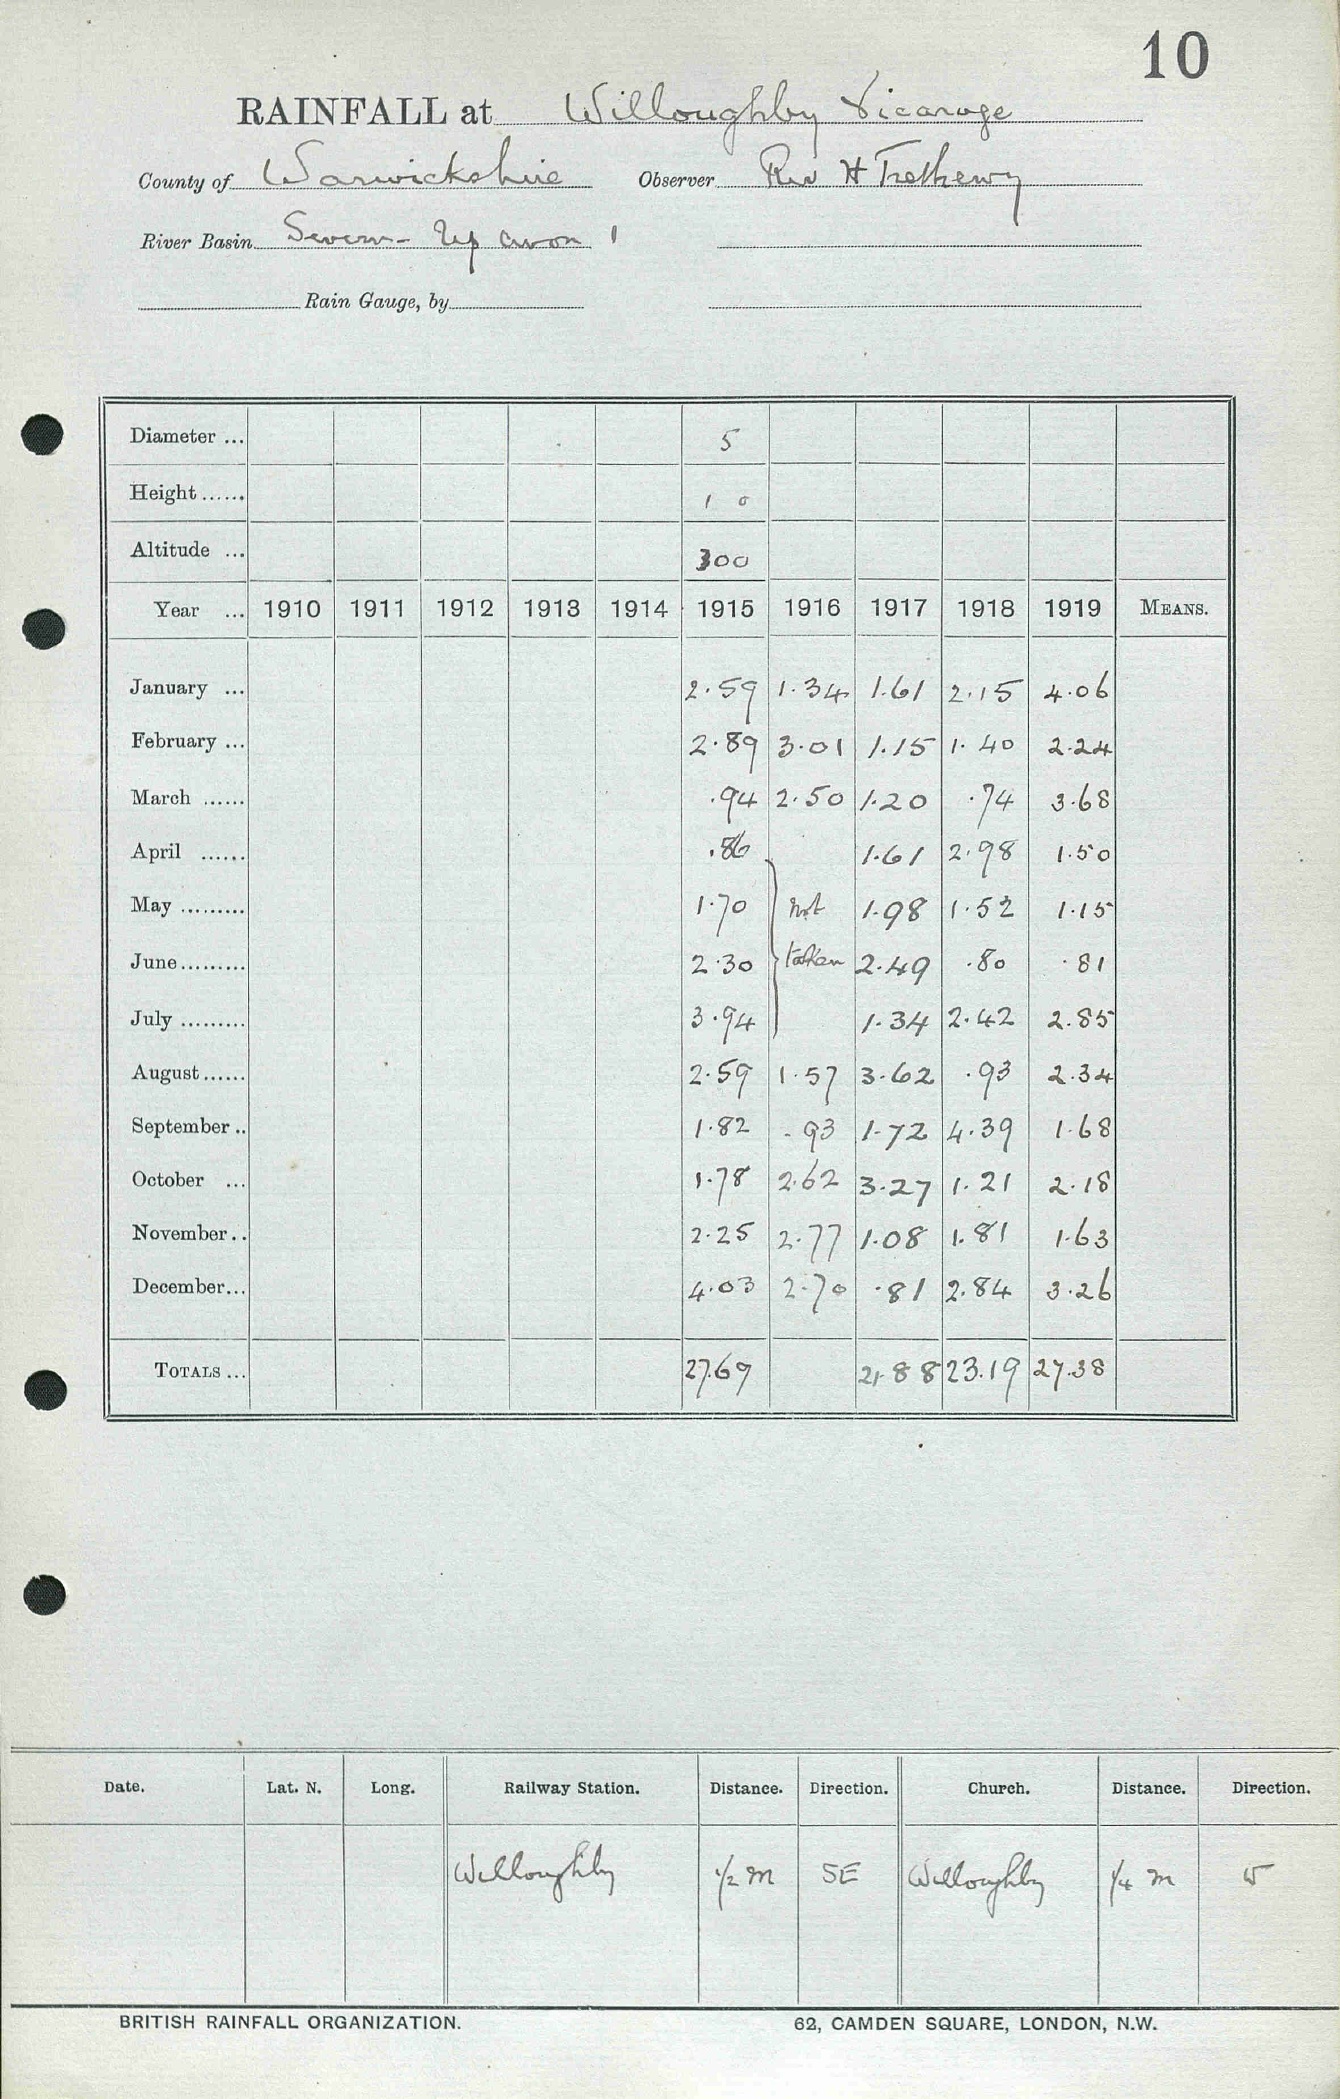 10
RAINFALL at Willoughby Vicarage
County of Warwickshire Observer Rev H Trethewy
River Basin Severn - Up avon 1
Rain Gauge, by
Diameter ... 5
Height ...... 1 0
Altitude ... 300
Year ... 1910 1911 1912 1913 1914 1915 1916 1917 1918 1919 MEANS.
January ... 2.59 1.34 1.61 2.15 4.06
February ... 2.89 3.01 1.15 1.40 2.24
March ...... .94 2.50 1.20 .74 3.68
April ...... .86 1.61 2.98 1.50
May ......... 1.70 not 1.98 1.52 1.15
June ......... 2.30 taken 2.49 .80 .81
July ......... 3.94 1.34 2.42 2.85
August ...... 2.59 1.57 3.62 .93 2.34
September .. 1.82 .93 1.72 4.39 1.68
October ... 1.78 2.62 3.27 1.21 2.18
November .. 2.25 2.77 1.08 1.81 1.63
December ... 4.03 2.70 .81 2.84 3.26
TOTALS ... 27.69 21.88 23.19 27.38
Date. Lat. N. Long. Railway Station. Distance. Direction. Church. Distance. Direction.
Willoughby 1/2 m SE Willoughby 1/4 m W
BRITISH RAINFALL ORGANIZATION. 62, CAMDEN SQUARE, LONDON, N.W.